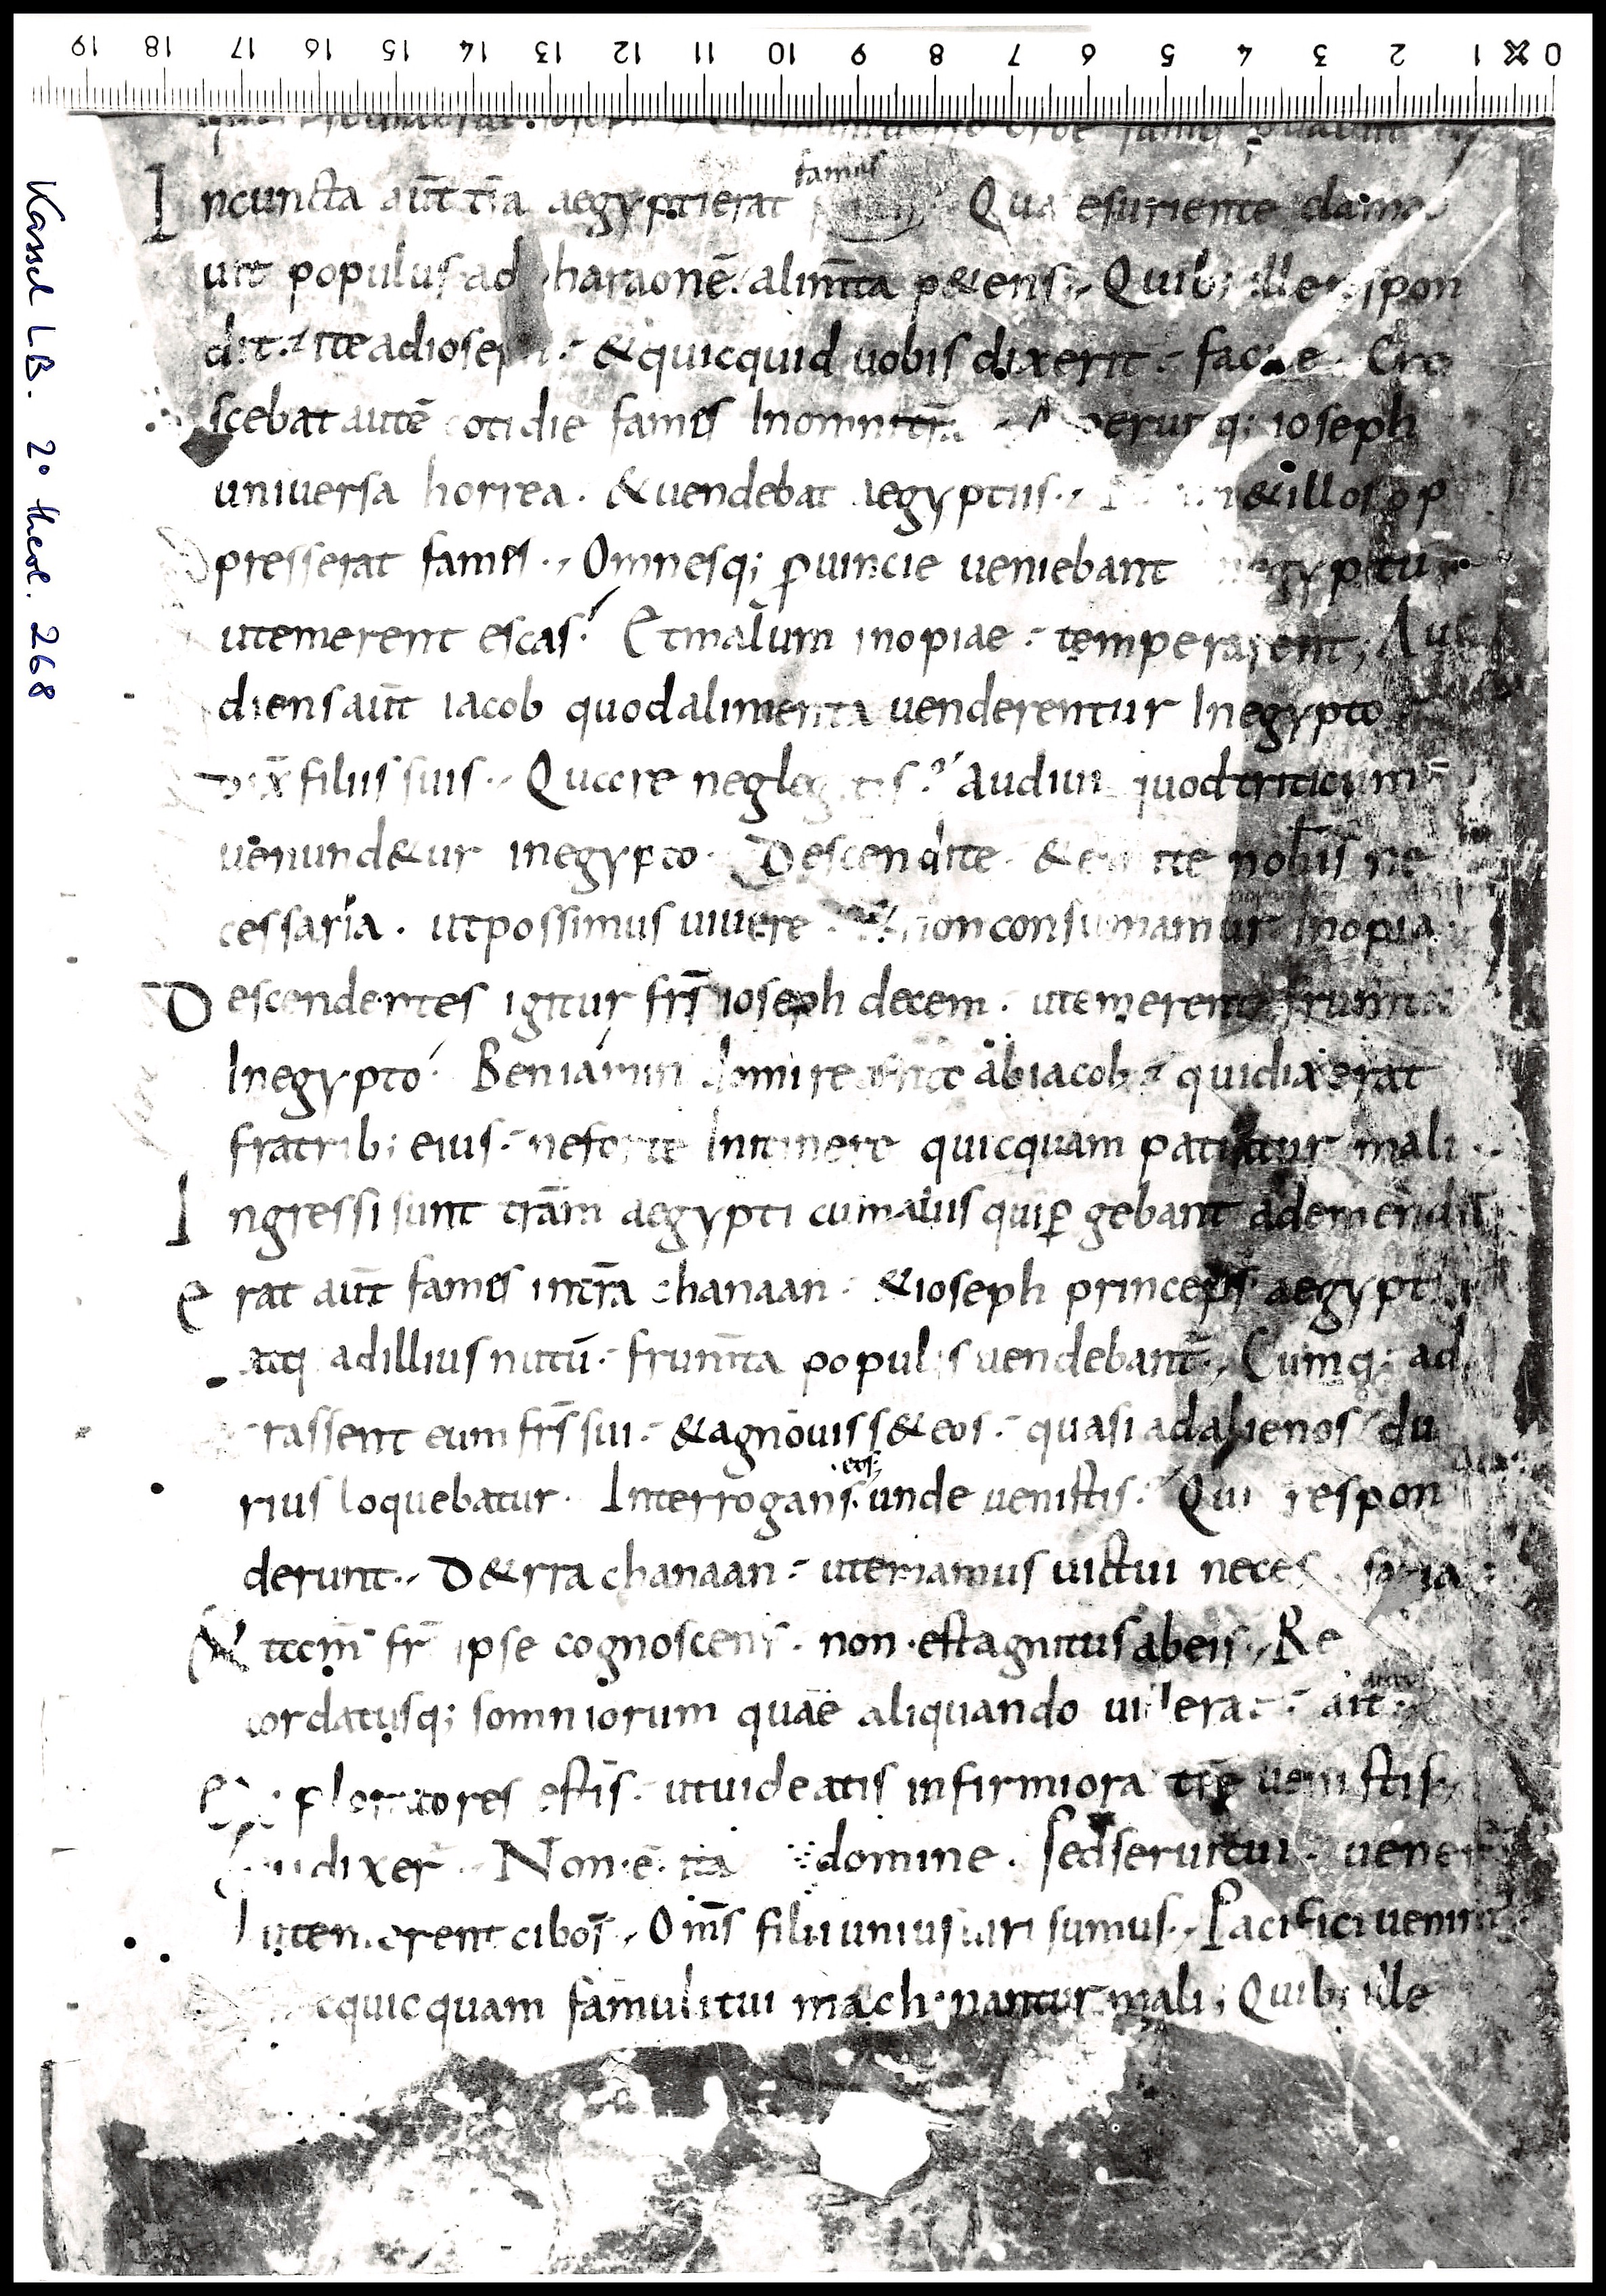 19 18 17 16 15 14 13 12 11 10 9 8 7 6 5 4 3 2 1 0
Kassel LB. 2° theol. 268
famis
Incuncta aut̄ tr̄a aegyptierat Qua esuriente clama
uit populus ad pharaonē. alim̄ta p&ens. Quib; ille respon
dit. ite adioseph. &quicquid uobis dixerit. facite Cre
scebat autē cotidie famis Inomnitr̄a Aperuitq; ioseph
uniuersa horrea. &uendebat aegyptiis. &illos op
presserat famis. Omnesq; ꝓuincie ueniebant Inegyptū
utemerent escas. Etmalum inopiae. temperarent; Au
diensaut̄ iacob quodalimenta uenderentur Inegypto
dix̄ filiis suis. Quare neglegitis? audiui quodtriticum
uenund&ur inegypto. Descendite. &emite nobis ne
cessaria. utpossimus uiuere. &nonconsumamur inopia
Descendentes igitur fr̄s ioseph decem. utemerent frum̄ta
Inegypto. Beniamin domi abiacob. quidixerat
fratrib; eius. neforte Initinere quicquam patiatur mali
Ingressi sunt tr̄am aegypti cumaliis quiꝑgebant ademendū
erat aut̄ famis intr̄a chanaan. &ioseph princeps aegypti
atq; adillius nutū. frum̄ta populis uendebant̄. Cumq; ado
rassent eum fr̄s sui. &agnouiss&eos. quasi adalienos du
eos;
rius loquebatur. Interrogans. unde uenistis. Qui respon
derunt. D&erra chanaan. utemamus uictui necessaria
&tam̄ fr̄ ipse cognoscens. non estagnitusabeis. Re
cordatusq; somniorum quae aliquando uiderat. ait
Exploratores estis. utuideatis infirmiora tr̄e uenistis
Quidixer̄. Non ē ita domine. sedseruitui. uener̄
utemerent cibos. Om̄s filii unius uiri sumus. Pacificiuenim̄
quicquam famulitui machinantur mali; Quib; ille